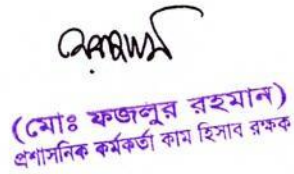 (মোঃ ফজলুর রহমান)
প্রশাসনিক কর্মকর্তা কাম হিসাব রক্ষক